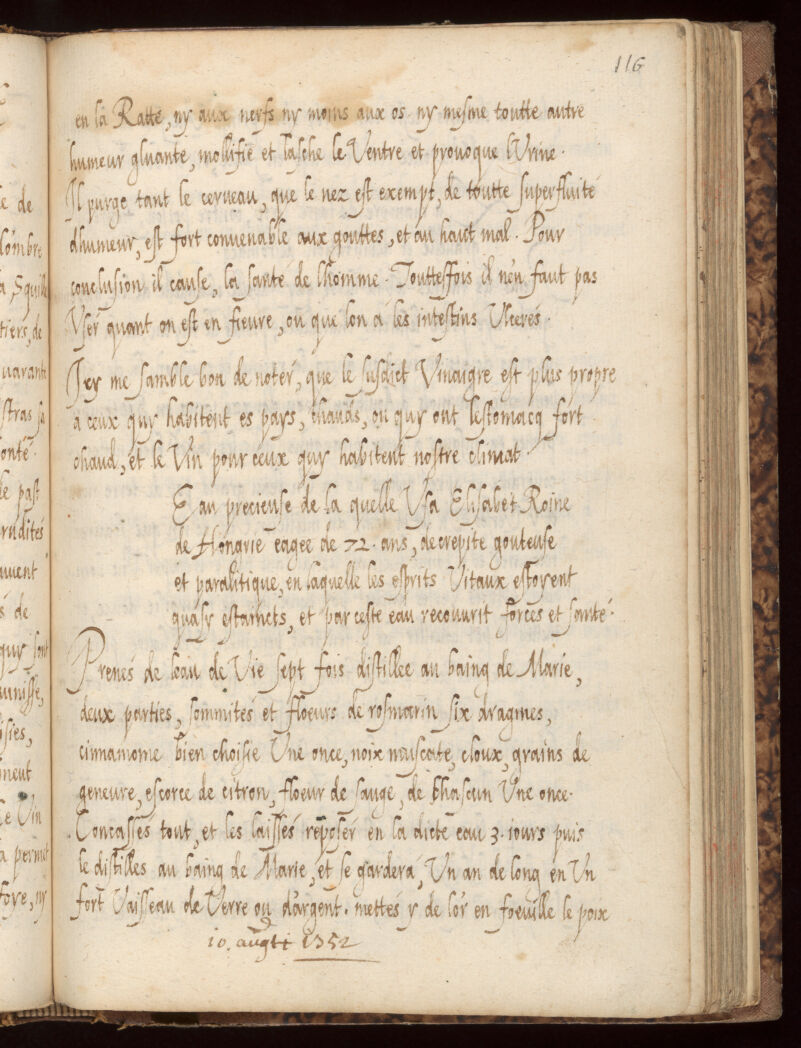 116
en la Ratte, ny aux nerfs ny moins aux os ny mesme toutte autre
humeur gluante, mollifie et lasche le Ventre et prouoque lVrine.
Il purge tant le cerueau, que le nez est exempt, de toutte superfluité
dhumeur, est fort conuenable aux gouttes, et au hault mal. Pour
conclusion il cause, la santé de lhomme. Touttesfois il n'en faut pas
Vser quant on est en fieure, ou que lon a les intestins Vlcerés.
Icy me samble bon de noter, que le susdict Vinaigre est plus propre
a ceux quy habitent es pays, chauds, ou quy ont lestomacq fort
chaud, et le Vin pour ceux quy habitent nostre climat.
Eau precieuse de la quelle Vsa Elisabet Roine
de Hongrie eagee de 72. ans, decrepite gouteuse
et paralitique, en laquelle les esprits Vitaux estoyent
quasy estaincts, et par ceste eau recouurit forces et santé.
Prenes de leau de Vie sept fois distillee au baing de Marie,
deux parties, sommités et floeurs de rosmarin six dragmes,
cinnamome bien choisie Une once, noix muscate, cloux, grains de
geneure, escorce de citron, floeur de sauge, de chascun Une once.
Concassés tout, et les laissés reposer en la dicte eau 3. iours puis
le distilles au baing de Marie, et se gardera, Un an de long en Un
fort Vaisseau de Verre ou d'argent. mettés y de lor en foeuille le poix
10. augti 1352
le de
a Squill
tiers, de
uarante
onté.
le past
rudités
s de
quy sont
le Vin
a permet
foye, ny